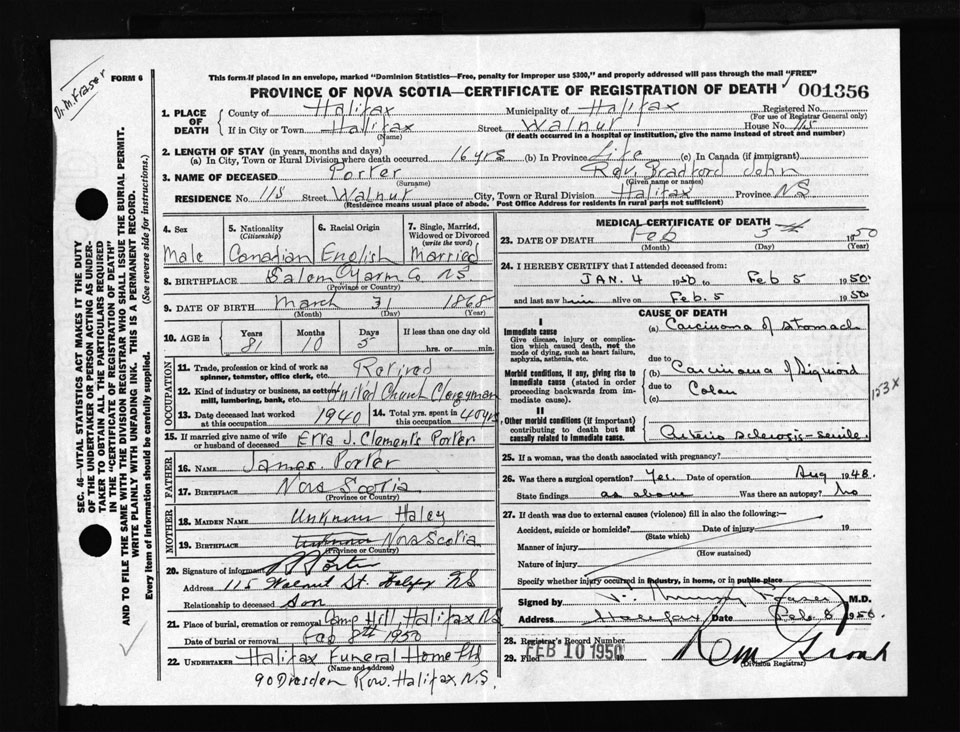 Dr. M. Fraser
FORM 6
SEC. 46—VITAL STATISTICS ACT MAKES IT THE DUTY
OF THE UNDERTAKER OR PERSON ACTING AS UNDER-
TAKER TO OBTAIN ALL THE PARTICULARS REQUIRED
IN THE "CERTIFICATE OF REGISTRATION OF DEATH"
AND TO FILE THE SAME WITH THE DIVISION REGISTRAR WHO SHALL ISSUE THE BURIAL PERMIT.
WRITE PLAINLY WITH UNFADING INK. THIS IS A PERMANENT RECORD.
Every item of information should be carefully supplied. (See reverse side for instructions.)
This form if placed in an envelope, marked "Dominion Statistics—Free, penalty for improper use $300," and properly addressed will pass through the mail "FREE"
PROVINCE OF NOVA SCOTIA—CERTIFICATE OF REGISTRATION OF DEATH 001356
1. PLACE OF DEATH County of Halifax Municipality of Halifax Registered No.
(For use of Registrar General only)
If in City or Town Halifax Street Walnut House No. 115
(Name) (If death occurred in a hospital or institution, give the name instead of street and number)
2. LENGTH OF STAY (in years, months and days)
(a) In City, Town or Rural Division where death occurred 16 yrs (b) In Province Life (c) In Canada (if immigrant)
3. NAME OF DECEASED Porter Rev. Bradford John
(Surname) (Given name or names)
RESIDENCE No. 115 Street Walnut City, Town or Rural Division Halifax Province NS
(Residence means usual place of abode. Post Office Address for residents in rural parts not sufficient)
4. Sex 5. Nationality 6. Racial Origin 7. Single, Married,
(Citizenship) Widowed or Divorced
(write the word)
Male Canadian English Married
8. BIRTHPLACE Salem Yarm. Co. N.S.
(Province or Country)
9. DATE OF BIRTH March 31 1868
(Month) (Day) (Year)
10. AGE in Years Months Days If less than one day old
81 10 5 hrs. or min.
OCCUPATION
11. Trade, profession or kind of work as
spinner, teamster, office clerk, etc. Retired
12. Kind of industry or business, as cotton
mill, lumbering, bank, etc. United Church Clergyman
13. Date deceased last worked
at this occupation 1940 14. Total yrs. spent in
this occupation 40 yrs
15. If married give name of wife
or husband of deceased Erra J. Clements Porter
FATHER
16. NAME James Porter
17. BIRTHPLACE Nova Scotia
(Province or Country)
MOTHER
18. MAIDEN NAME Unknown Haley
19. BIRTHPLACE Unknown Nova Scotia
(Province or Country)
20. Signature of informant Porter
Address 115 Walnut St. Halifax NS
Relationship to deceased Son
21. Place of burial, cremation or removal Camp Hill, Halifax N.S
Date of burial or removal Feb 8th 1950
22. UNDERTAKER Halifax Funeral Home Ltd
(Name and address)
90 Dresden Row. Halifax, N.S.
MEDICAL CERTIFICATE OF DEATH
23. DATE OF DEATH Feb 5th 1950
(Month) (Day) (Year)
24. I HEREBY CERTIFY that I attended deceased from:
JAN. 4 1950 to Feb 5 1950
and last saw him alive on Feb. 5 1950
CAUSE OF DEATH
I
Immediate cause (a) Carcinoma of Stomach
Give disease, injury or complica-
tion which caused death, not the
mode of dying, such as heart failure,
asphyxia, asthenia, etc.
due to
Morbid conditions, if any, giving rise to (b) Carcinoma of Sigmoid
immediate cause (stated in order due to Colon
proceeding backwards from im-
mediate cause). (c)
153X
II
Other morbid conditions (if important)
contributing to death but not
causally related to immediate cause. Arterio sclerosis - senile.
25. If a woman, was the death associated with pregnancy?
26. Was there a surgical operation? Yes. Date of operation Aug 1948.
State findings as above Was there an autopsy? No
27. If death was due to external causes (violence) fill in also the following:—
Accident, suicide or homicide? Date of injury 19
(State which)
Manner of injury
(How sustained)
Nature of injury
Specify whether injury occurred in industry, in home, or in public place
Signed by Murray Fraser M.D.
Address Halifax Date Feb. 8 1950
28. Registrar's Record Number
29. Filed FEB 10 1950 19
(Division Registrar)